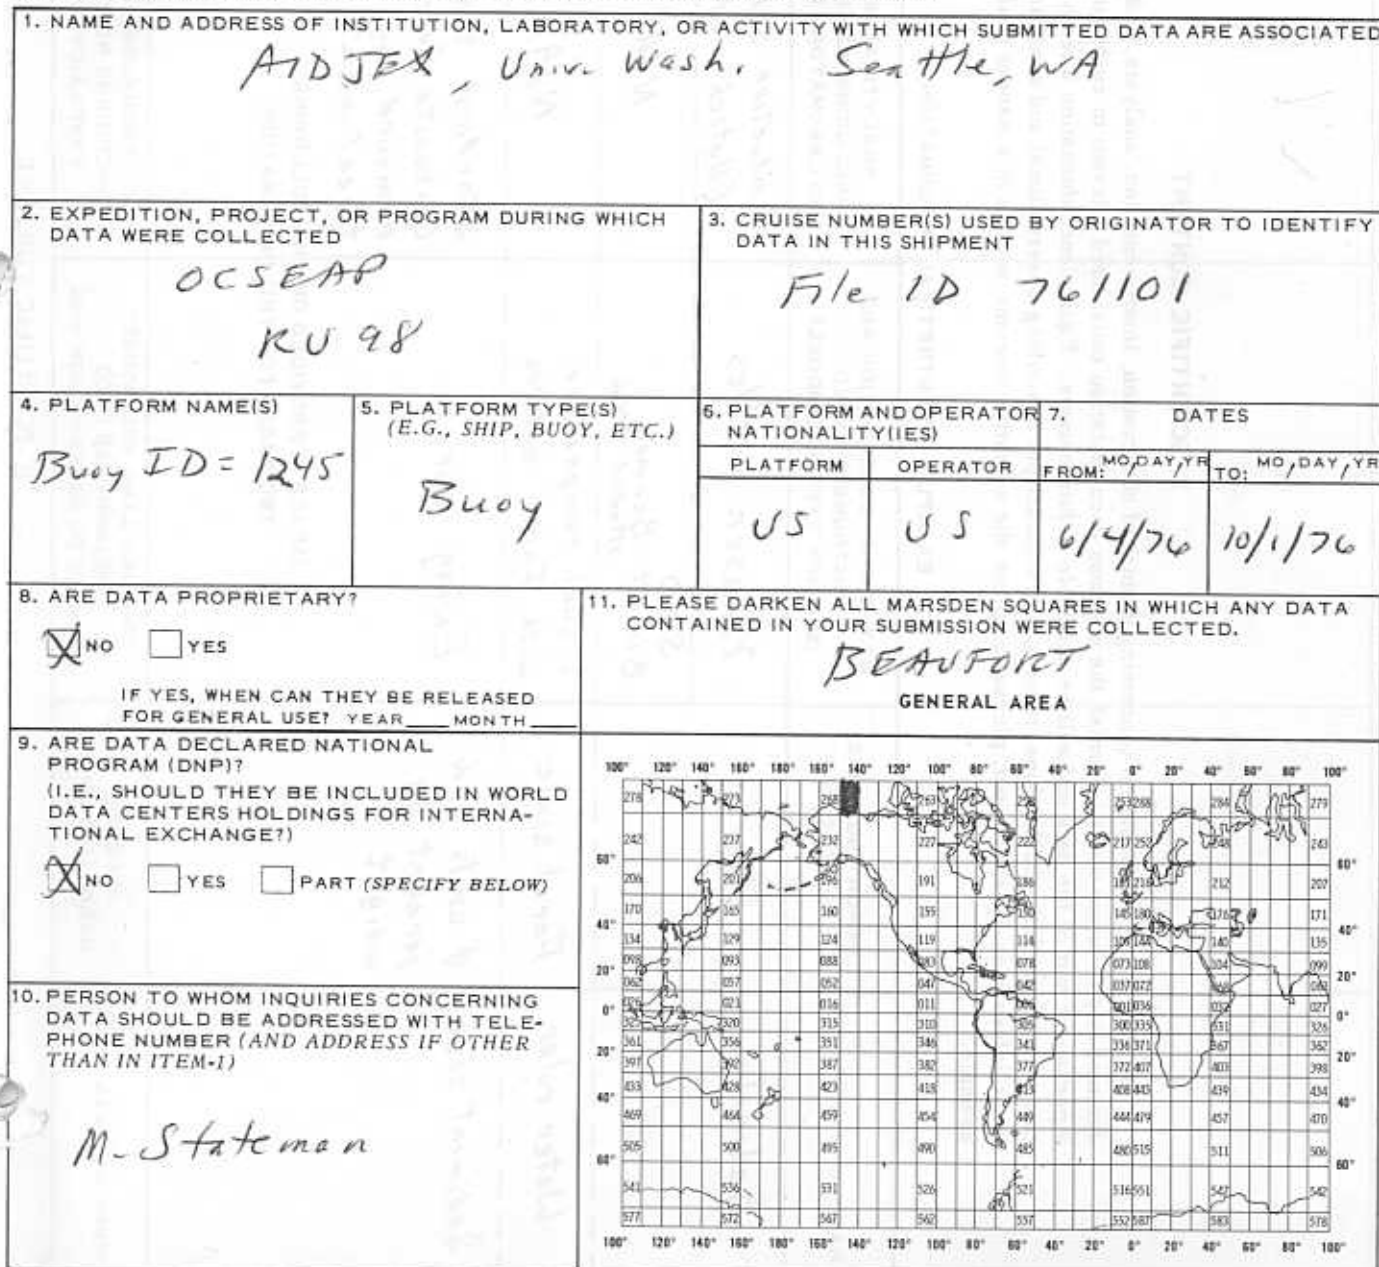 1. NAME AND ADDRESS OF INSTITUTION, LABORATORY, OR ACTIVITY WITH WHICH SUBMITTED DATA ARE ASSOCIATED
AIDJEX, Univ. Wash. Seattle, WA
2. EXPEDITION, PROJECT, OR PROGRAM DURING WHICH
DATA WERE COLLECTED
OCSEAP
RU 98
3. CRUISE NUMBER(S) USED BY ORIGINATOR TO IDENTIFY
DATA IN THIS SHIPMENT
File ID 761101
4. PLATFORM NAME(S)
Buoy ID = 1245
5. PLATFORM TYPE(S)
(E.G., SHIP, BUOY, ETC.)
Buoy
6. PLATFORM AND OPERATOR
NATIONALITY(IES)
PLATFORM OPERATOR
US US
7. DATES
FROM: MO, DAY, YR TO: MO, DAY, YR
6/4/76 10/1/76
8. ARE DATA PROPRIETARY?
X NO YES
IF YES, WHEN CAN THEY BE RELEASED
FOR GENERAL USE? YEAR____ MONTH____
11. PLEASE DARKEN ALL MARSDEN SQUARES IN WHICH ANY DATA
CONTAINED IN YOUR SUBMISSION WERE COLLECTED.
BEAUFORT
GENERAL AREA
9. ARE DATA DECLARED NATIONAL
PROGRAM (DNP)?
(I.E., SHOULD THEY BE INCLUDED IN WORLD
DATA CENTERS HOLDINGS FOR INTERNA-
TIONAL EXCHANGE?)
X NO YES PART (SPECIFY BELOW)
10. PERSON TO WHOM INQUIRIES CONCERNING
DATA SHOULD BE ADDRESSED WITH TELE-
PHONE NUMBER (AND ADDRESS IF OTHER
THAN IN ITEM-1)
M. Stateman
100° 120° 140° 160° 180° 160° 140° 120° 100° 80° 60° 40° 20° 0° 20° 40° 60° 80° 100°
278 273 268 263 253 288 284 279
242 237 232 227 222 217 252 248 243
60° 60°
206 201 196 191 186 212 207
170 165 160 155 150 145 180 176 171
40° 40°
134 129 124 119 114 109 144 140 135
098 093 088 083 078 073 108 104 099
20° 20°
062 057 052 047 042 037 072 068 063
026 021 016 011 006 001 036 032 027
0° 0°
325 320 315 310 305 300 335 331 326
361 356 351 346 341 336 371 367 362
20° 20°
397 392 387 382 377 372 407 403 398
433 428 423 418 413 408 443 439 434
40° 40°
469 464 459 454 449 444 479 457 470
505 500 495 490 485 480 515 511 506
60° 60°
541 536 531 526 521 516 551 547 542
577 572 567 562 557 552 587 583 578
100° 120° 140° 160° 180° 160° 140° 120° 100° 80° 60° 40° 20° 0° 20° 40° 60° 80° 100°